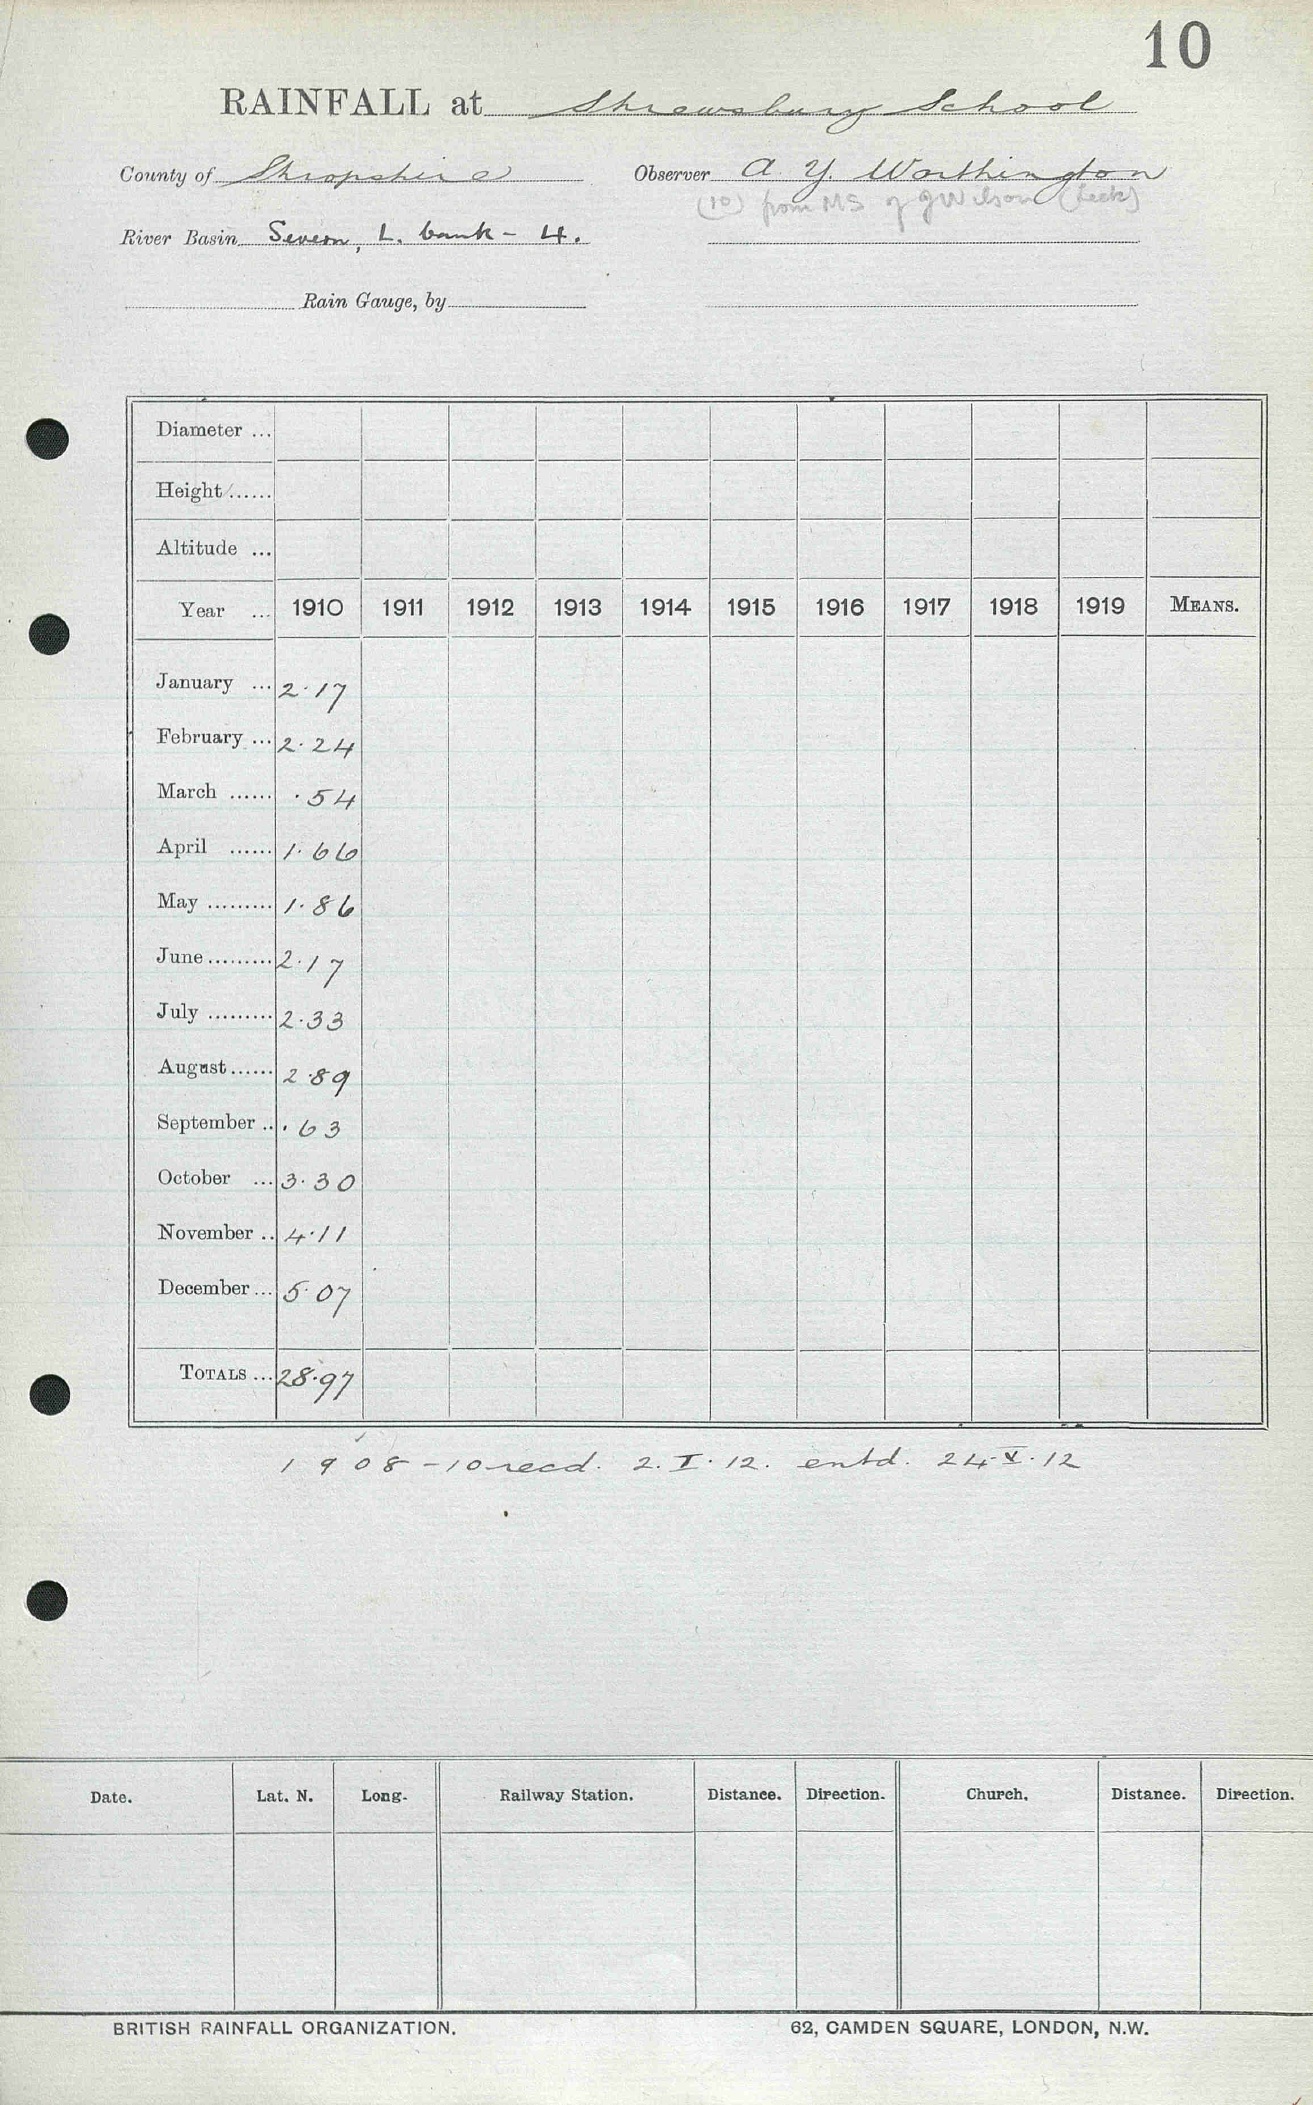 10
RAINFALL at Shrewsbury School
County of Shropshire Observer A. Y. Worthington
(10) from MS of J Wilson (Leek)
River Basin Severn, L. bank - 4.
Rain Gauge, by
Diameter ...
Height ......
Altitude ...
Year ... 1910 1911 1912 1913 1914 1915 1916 1917 1918 1919 MEANS.
January ... 2.17
February ... 2.24
March ...... .54
April ...... 1.66
May ......... 1.86
June ......... 2.17
July ......... 2.33
August ...... 2.89
September .. .63
October ... 3.30
November .. 4.11
December ... 5.07
TOTALS ... 28.97
1908-10 recd. 2.I.12. entd. 24.V.12
Date. Lat. N. Long. Railway Station. Distance. Direction. Church. Distance. Direction.
BRITISH RAINFALL ORGANIZATION. 62, CAMDEN SQUARE, LONDON, N.W.